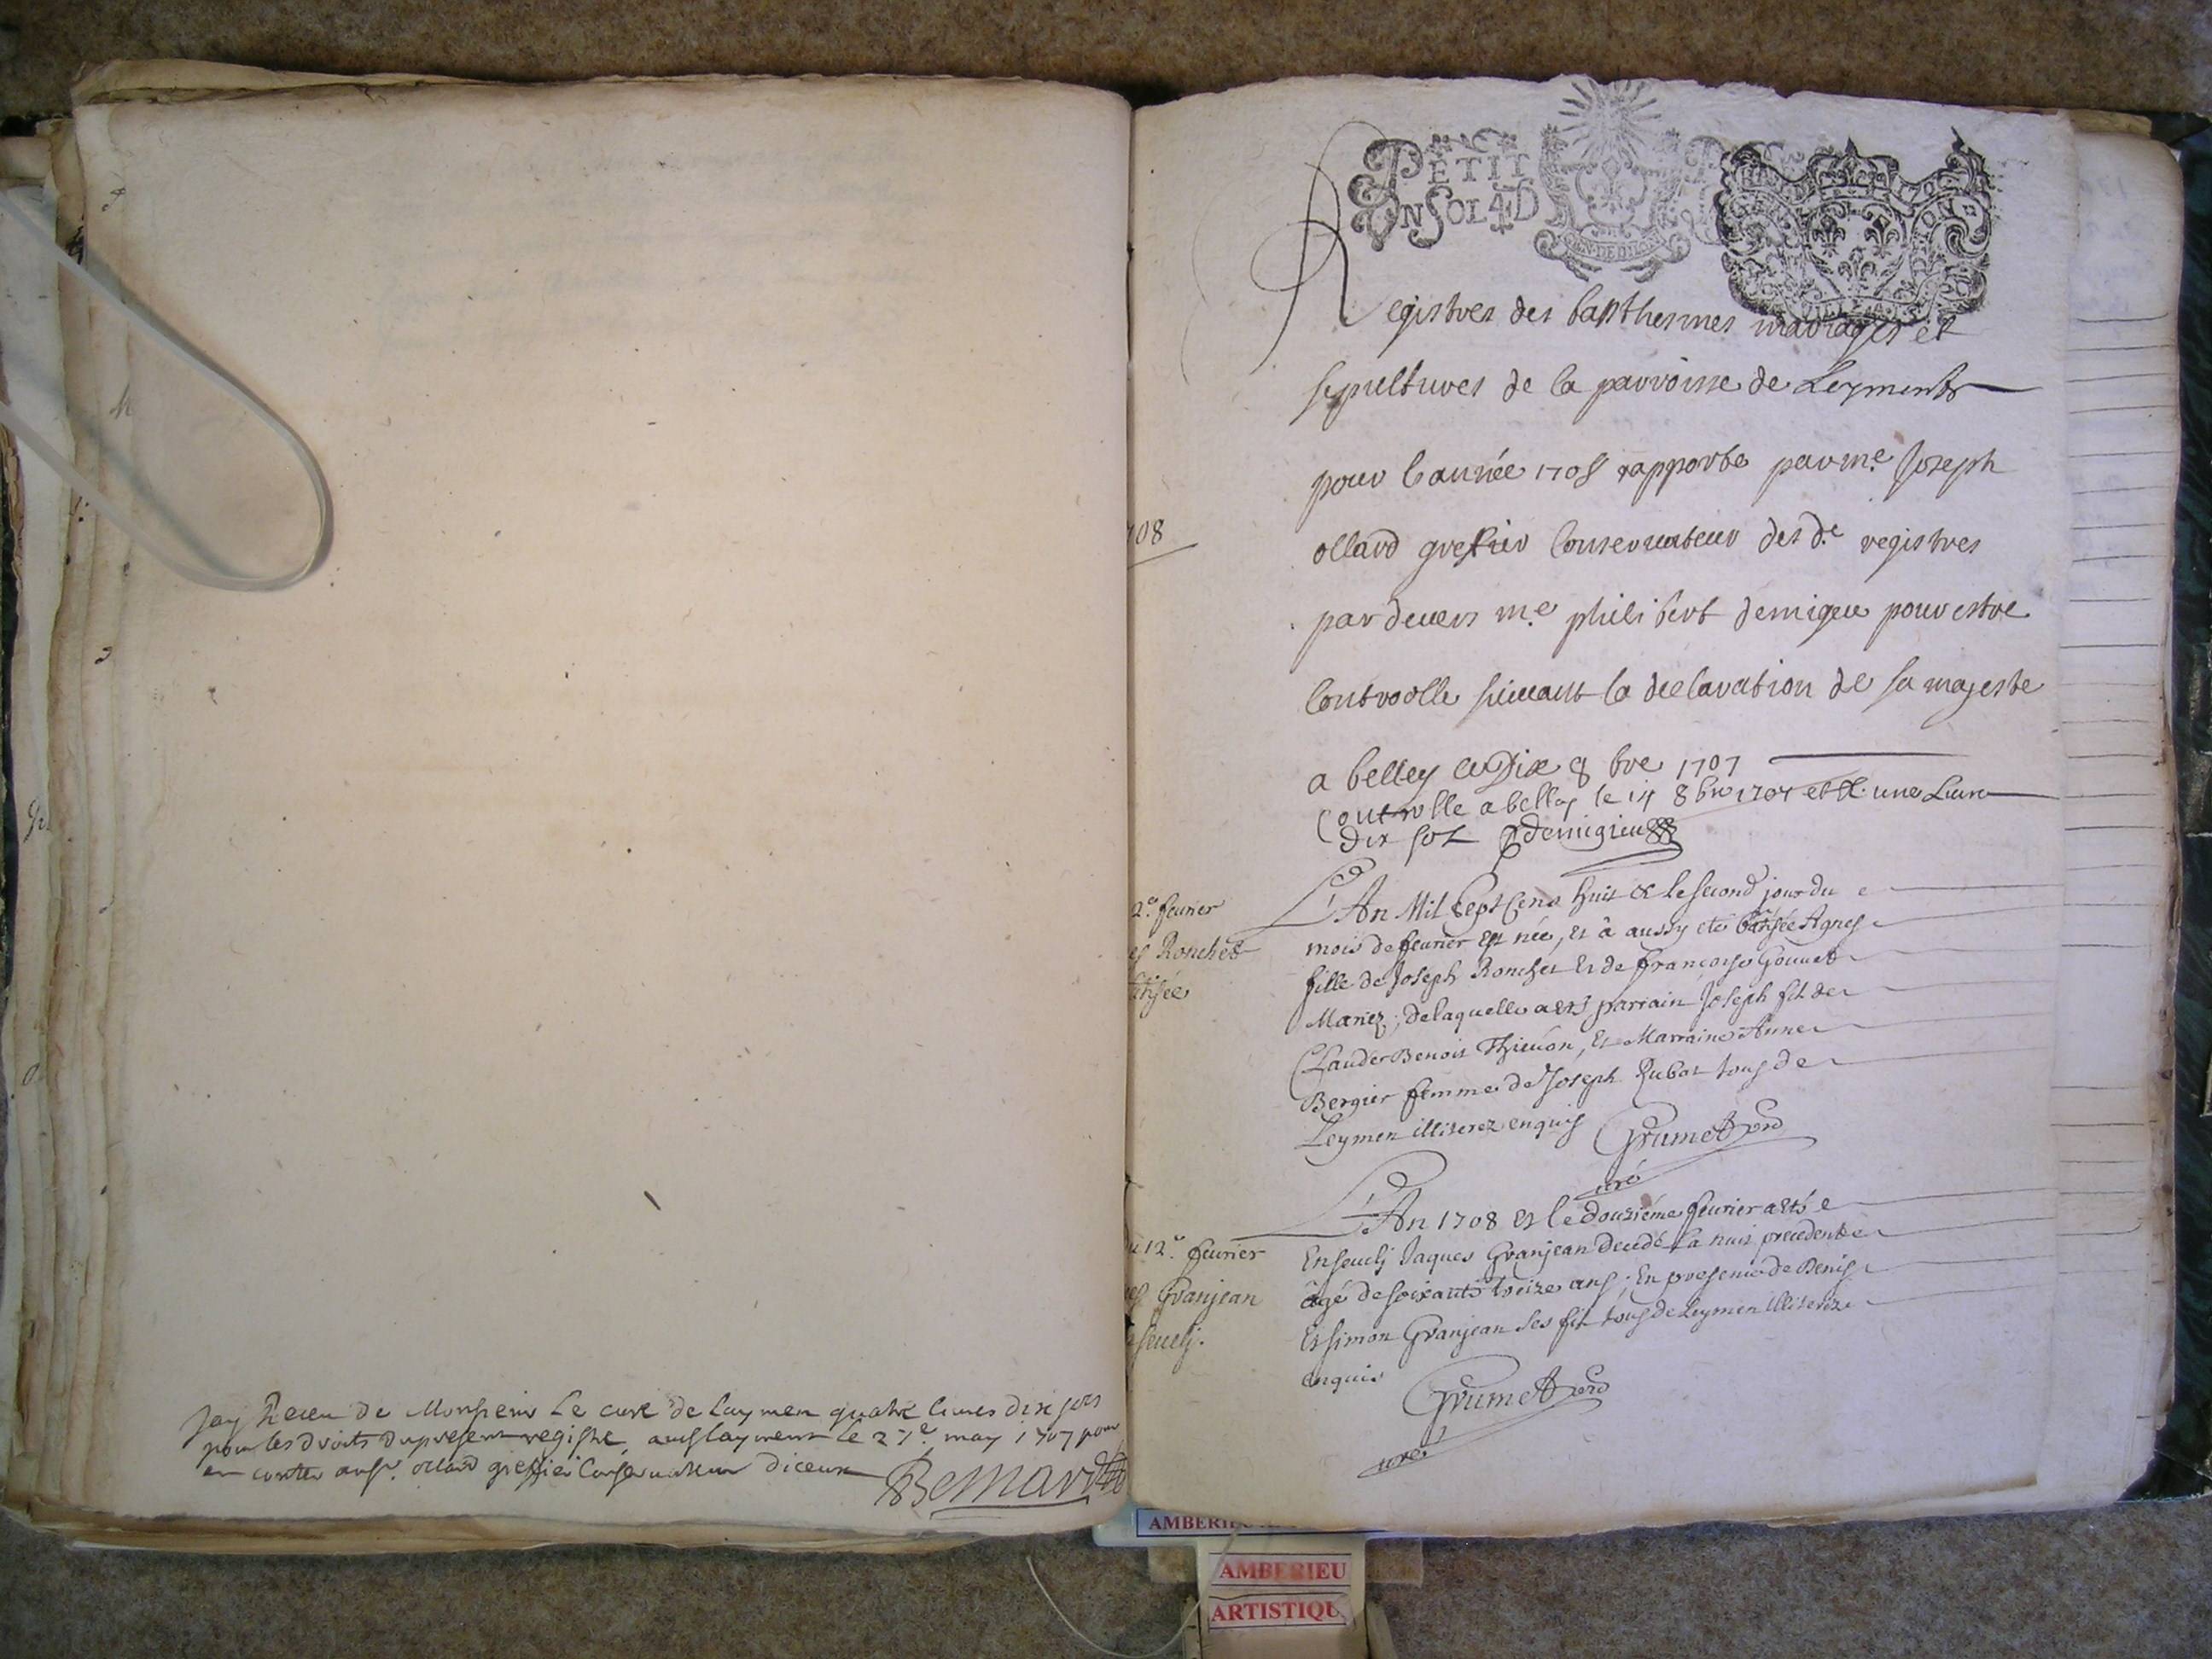 Jay Receu de Monsieur Le curé de Laymen quatre liures dix sols
pour les droits du present registre le 27e may 1707 pour
en conter ollard greffier Conseruateur diceux
Bernard
PETIT
UN SOL 4 D
GEN. DE DIJON
Registres des bapthesmes mariages et
sepultures de la parroisse de Leyments
pour lannée 1708 rapporte par me Joseph
ollard grefier Conseruateur des de registres
par deuers me philibert demigieu pour estre
Controolle suiuant la declaration de sa majeste
a belley ce Dix 8 bre 1707
Controlle a belley le 14 8bre 1707 une Liure
dix sol demigieu
708
2e feurier
es Ronchet
tisée
L'An Mil sept Cens huit & le second jour du
mois de feurier est née, et à aussy eté batisée Agnes
fille de Joseph Ronchet et de francoise Gounet
Mariez; de laquelle a eté parrain Joseph fils de
Claude Benoit Thieuon, et Marraine Anne
Bergier femme de Joseph Rubat tous de
Leymen illiterez enquis Grumet
curé
12e feurier
es Granjean
seueli.
L'An 1708 et le douziéme feurier a eté
Enseueli Jaques Granjean decedé la nuit precedente
âgé de soixante treize ans; En presence de Benis
et Simon Granjean ses fils tous de Leymen illiterez
enquis Grumet
curé
AMBERIEU
AMBERIEU
ARTISTIQU